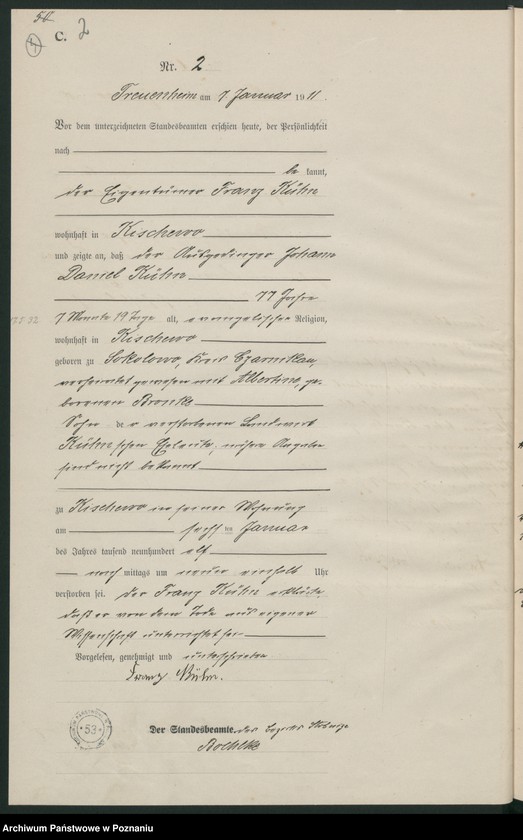 50
4
C. 2
Nr. 2
Treuenheim am 7 Januar 1911.
Vor dem unterzeichneten Standesbeamten erschien heute, der Persönlichkeit
nach
be kannt,
der Eigentümer Franz Kühn
wohnhaft in Kischewo
und zeigte an, daß der Altsitzer Johann
Daniel Kühn
77 Jahre
7 Monate 19 Tage alt, evangelischer Religion,
wohnhaft in Kischewo
geboren zu Sokolowo, Kreis Czarnikau,
verheiratet gewesen mit Albertine, ge-
borenen Bronke
Sohn der verstorbenen Landwirt
Kühn'schen Eheleute, nähere Angaben
sind nicht bekannt
zu Kischewo in seiner Wohnung
am sechs ten Januar
des Jahres tausend neunhundert elf
nach mittags um neun einhalb Uhr
verstorben sei. Der Franz Kühn erklärte,
daß er von dem Tode aus eigener
Wissenschaft unterrichtet sei
Vorgelesen, genehmigt und unterschrieben
Franz Kühn.
Der Standesbeamte.
53
Archiwum Państwowe w Poznaniu